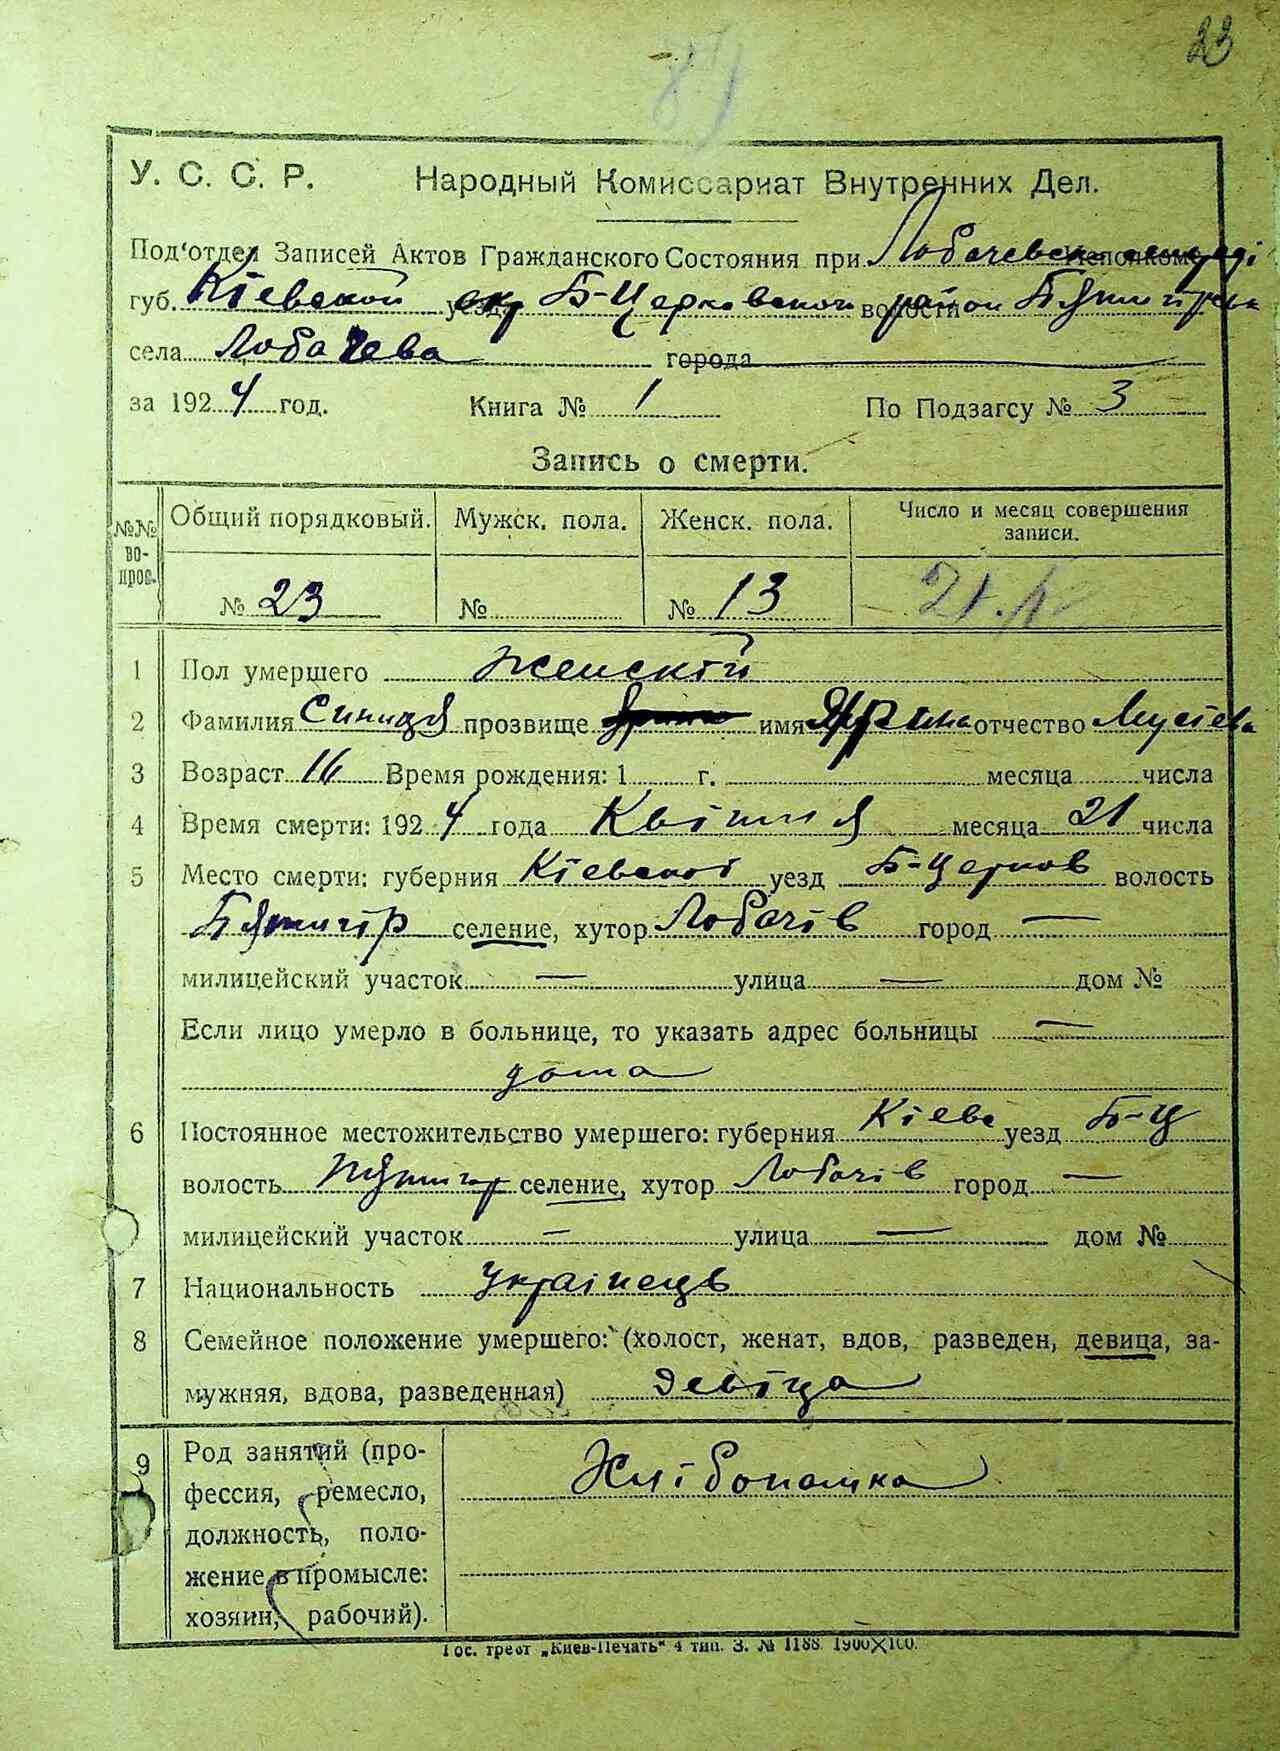 23
У. С. С. Р. Народный Комиссариат Внутренних Дел.
Под'отдел Записей Актов Гражданского Состояния при Лобачевск
губ. Кіевской окр Б-Церковской район
села Лобачева города
за 1924 год. Книга № 1 По Подзагсу № 3
Запись о смерти.
№№ во-прос. Общий порядковый. Мужск. пола. Женск. пола. Число и месяц совершения записи.
№ 23 № № 13 21.
1 Пол умершего Женскій
2 Фамилия Синиця прозвище имя Ярина отчество
3 Возраст 16 Время рождения: 1 г. месяца числа
4 Время смерти: 1924 года Квітня месяца 21 числа
5 Место смерти: губерния Кіевскої уезд Б-Церков волость
селение, хутор Лобачів город —
милицейский участок — улица — дом №
Если лицо умерло в больнице, то указать адрес больницы —
дома
6 Постоянное местожительство умершего: губерния Кіевс уезд Б-Ц
волость Пятигор селение, хутор Лобачів город —
милицейский участок — улица — дом №
7 Национальность Українець
8 Семейное положение умершего: (холост, женат, вдов, разведен, девица, за-
мужняя, вдова, разведенная) Девіца
9 Род занятий (про- Хлібопашка
фессия, ремесло,
должность, поло-
жение в промысле:
хозяин, рабочий).
Гос. трест „Киев-Печать" 4 тип. З. № 1188. 1900×100.